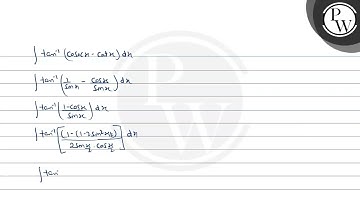 ∫ tan⁻¹ (cosecx - cotx) dx
∫ tan⁻¹ (1/sinx - cosx/sinx) dx
∫ tan⁻¹ (1-cosx/sinx) dx
∫ tan⁻¹ [(1-(1-2sin²x/2))/(2sinx/2 cosx/2)] dx
∫ tan
P
W
PW